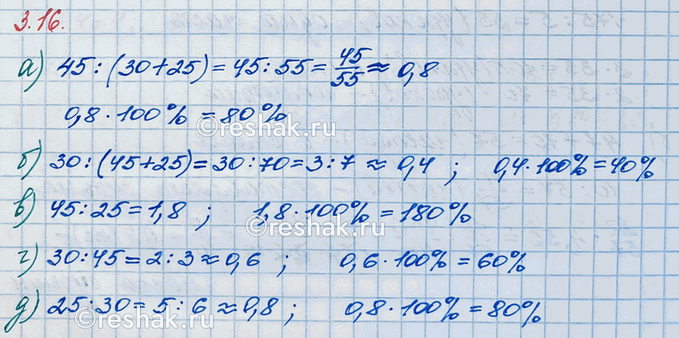 3.16.
а) 45 : (30+25) = 45 : 55 = 45/55 ≈ 0,8
0,8 · 100% = 80%
б) 30 : (45+25) = 30 : 70 = 3 : 7 ≈ 0,4 ; 0,4 · 100% = 40%
в) 45 : 25 = 1,8 ; 1,8 · 100% = 180%
г) 30 : 45 = 2 : 3 ≈ 0,6 ; 0,6 · 100% = 60%
д) 25 : 30 = 5 : 6 ≈ 0,8 ; 0,8 · 100% = 80%
©reshak.ru
©reshak.ru
©reshak.ru
©reshak.ru